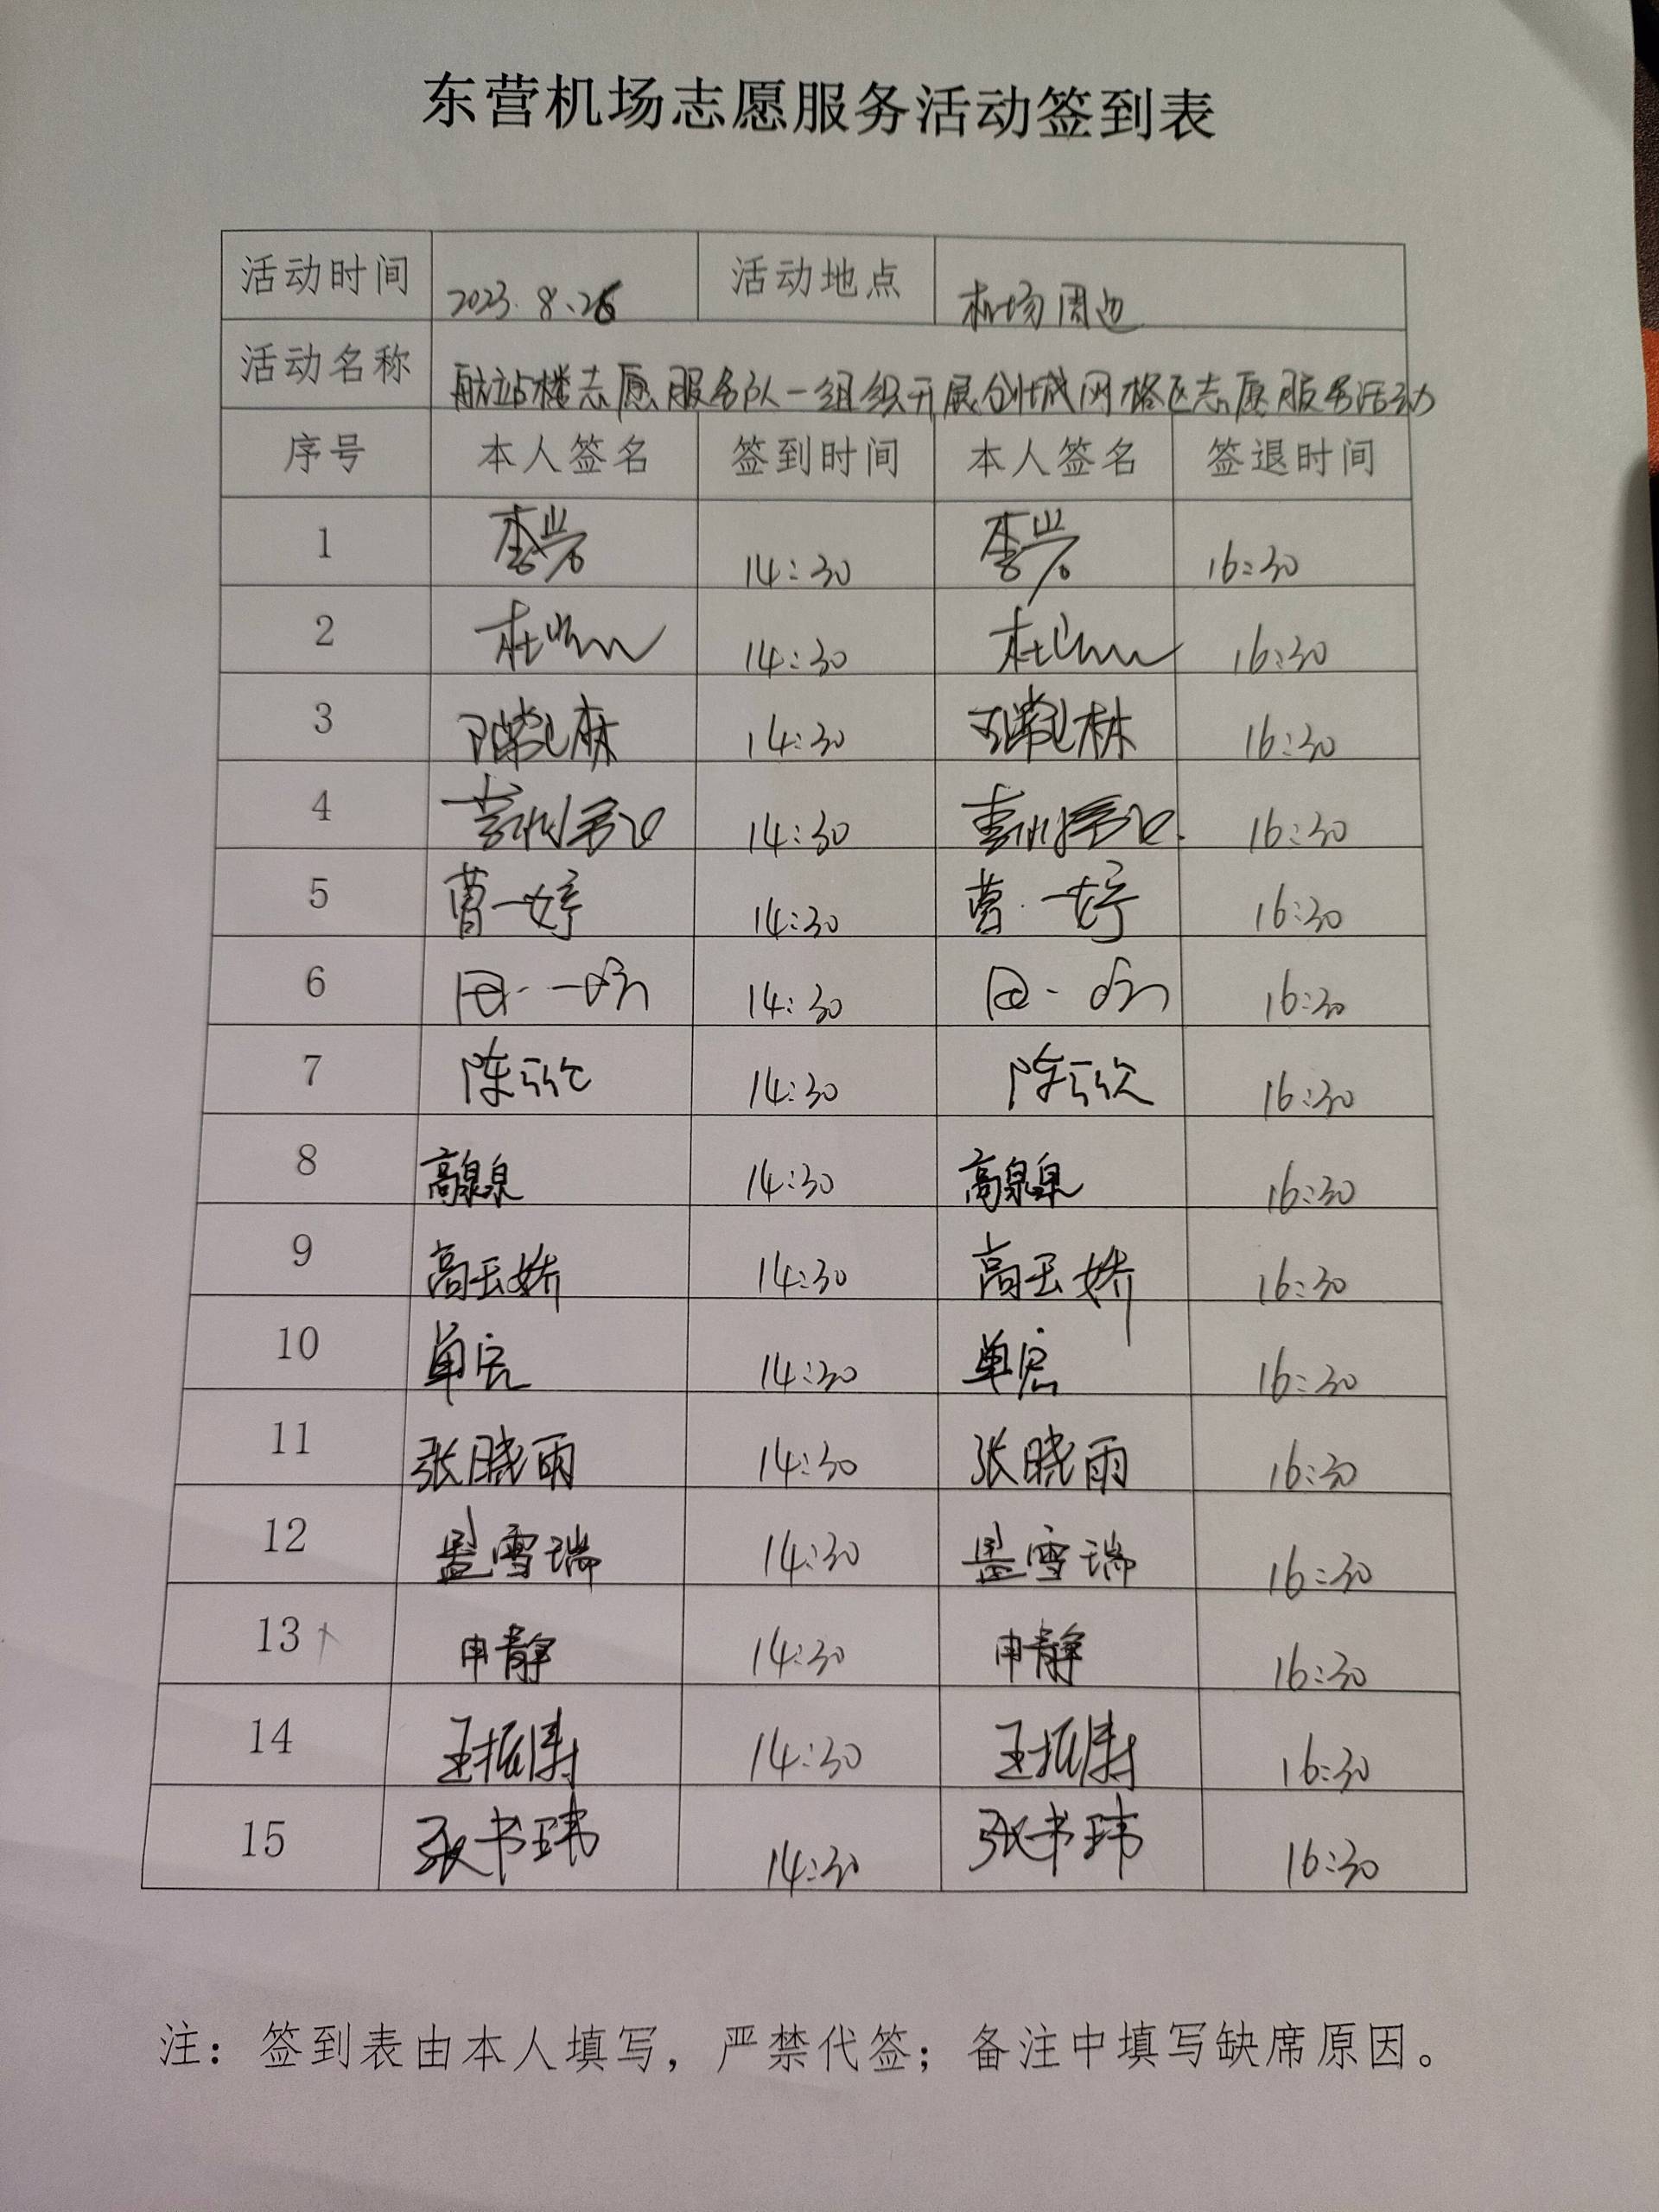 东营机场志愿服务活动签到表
活动时间 2023.8.26 活动地点 机场周边
活动名称 航站楼志愿服务队一组织开展创城网格区志愿服务活动
序号 本人签名 签到时间 本人签名 签退时间
1 李 14:30 李 16:30
2 杜 14:30 杜 16:30
3 14:30 16:30
4 14:30 16:30
5 曹一婷 14:30 曹一婷 16:30
6 14:30 16:30
7 陈 14:30 陈 16:30
8 高泉泉 14:30 高泉泉 16:30
9 高玉娇 14:30 高玉娇 16:30
10 单宏 14:30 单宏 16:30
11 张晓雨 14:30 张晓雨 16:30
12 雪瑞 14:30 雪瑞 16:30
13 申静 14:30 申静 16:30
14 王振 14:30 王振 16:30
15 张书玮 14:30 张书玮 16:30
注：签到表由本人填写，严禁代签；备注中填写缺席原因。